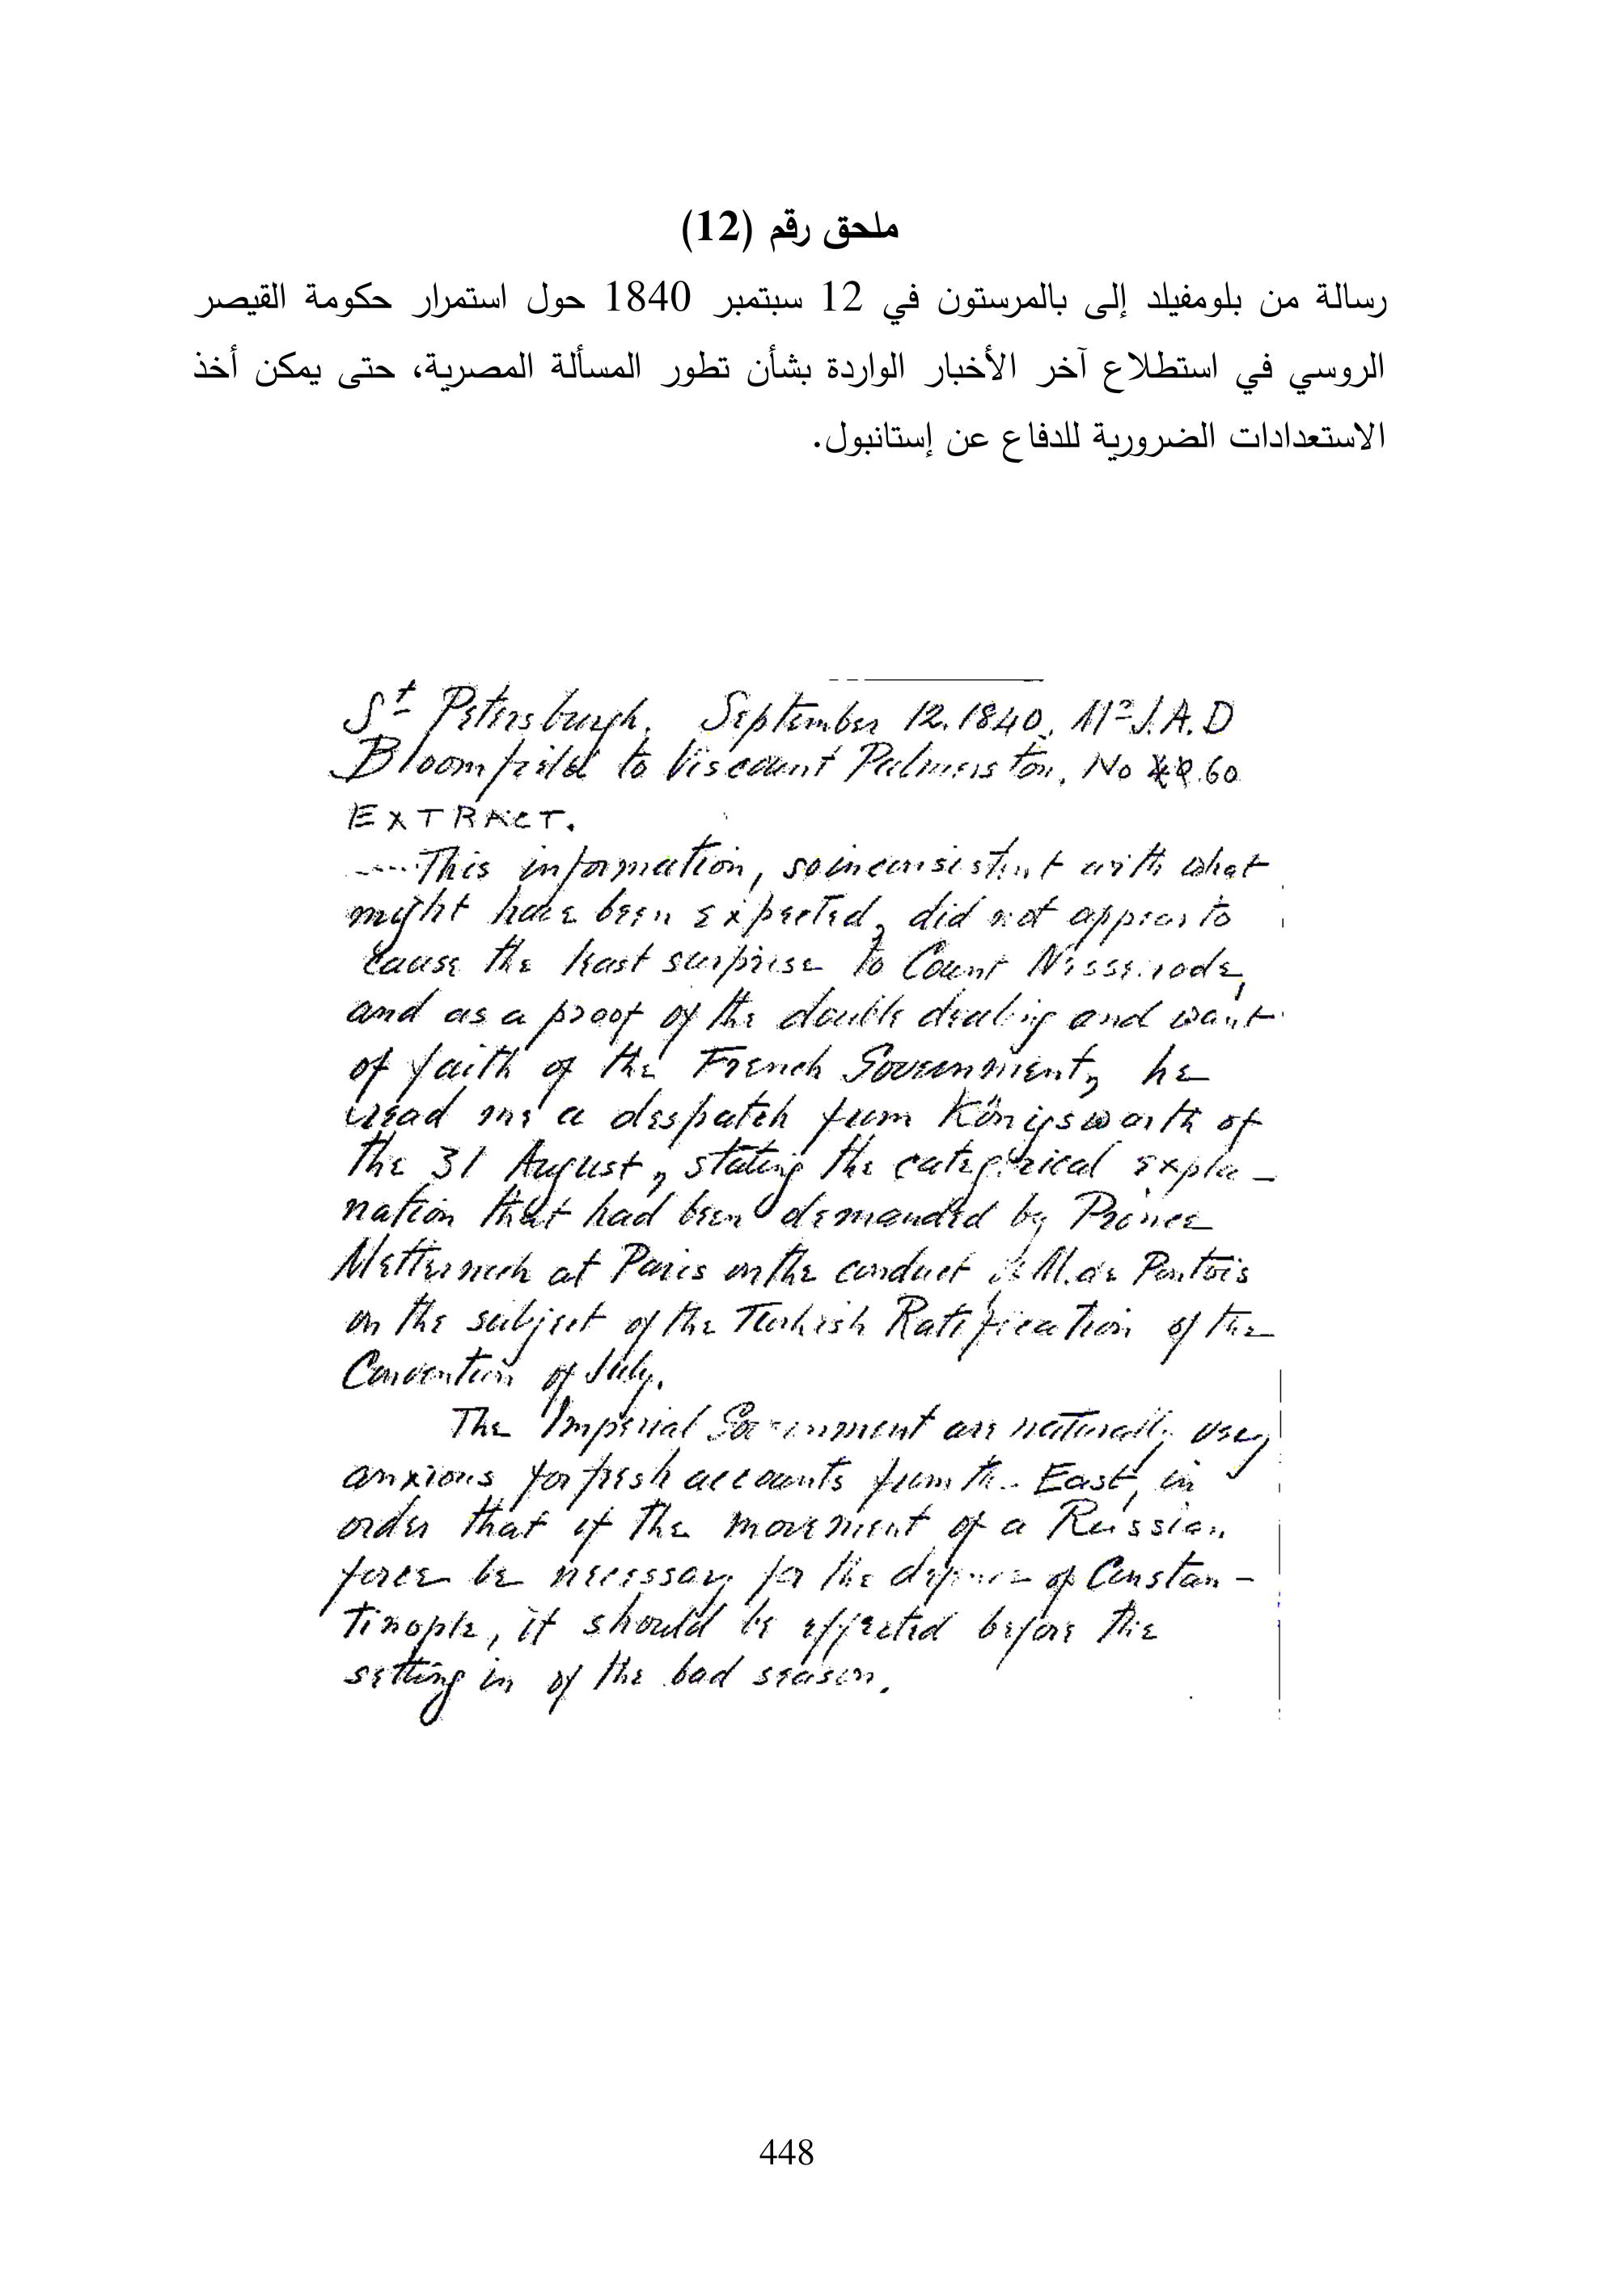 ملحق رقم (12)
رسالة من بلومفيلد إلى بالمرستون في 12 سبتمبر 1840 حول استمرار حكومة القيصر
الروسي في استطلاع آخر الأخبار الواردة بشأن تطور المسألة المصرية، حتى يمكن أخذ
الاستعدادات الضرورية للدفاع عن إستانبول.
St Petersburgh. September 12. 1840. Mr J.A.D
Bloomfield to Viscount Palmerston. No 60
EXTRACT.
....This information, so inconsistent with what
might have been expected, did not appear to
cause the least surprise to Count Nesselrode,
and as a proof of the double dealing and want
of faith of the French Government, he
read me a despatch from Königswarth of
the 31 August, stating the categorical expla-
nation that had been demanded by Prince
Metternich at Paris on the conduct of M. de Pontois
on the subject of the Turkish Ratification of the
Convention of July.
The Imperial Government are naturally very
anxious for fresh accounts from the East, in
order that if the movement of a Russian
force be necessary for the defence of Constan-
tinople, it should be effected before the
setting in of the bad season.
448